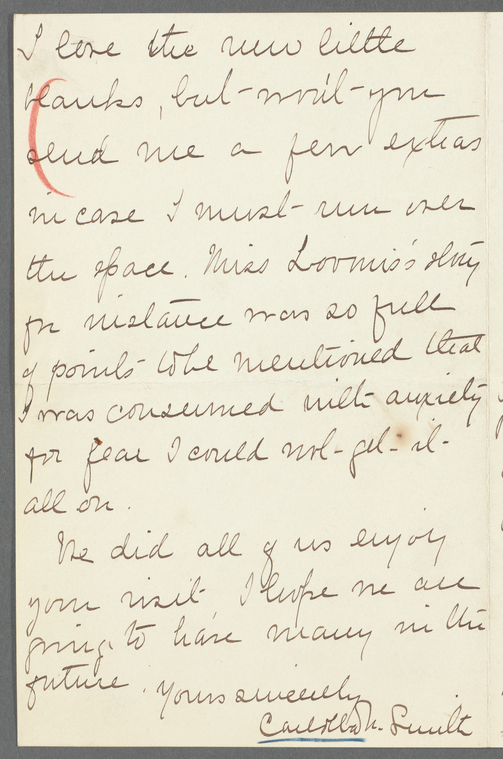 I love the new little
blanks, but won't you
send me a few extras
in case I must run over
the space. Miss Loomis's story
for instance was so full
of points to be mentioned that
I was consumed with anxiety
for fear I could not get it
all on.
We did all of us enjoy
your visit. I hope we are
going to have many in the
future. Yours sincerely
Smith